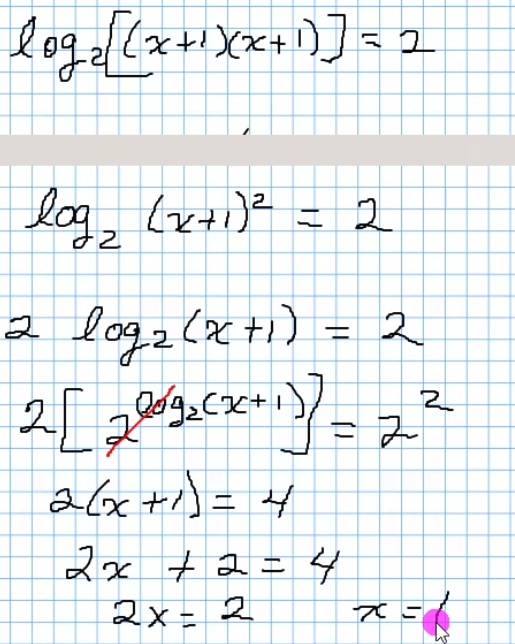 log₂[(x+1)(x+1)] = 2
log₂ (x+1)² = 2
2 log₂(x+1) = 2
2[2^(log₂(x+1))] = 2²
2(x+1) = 4
2x + 2 = 4
2x = 2 x = 1